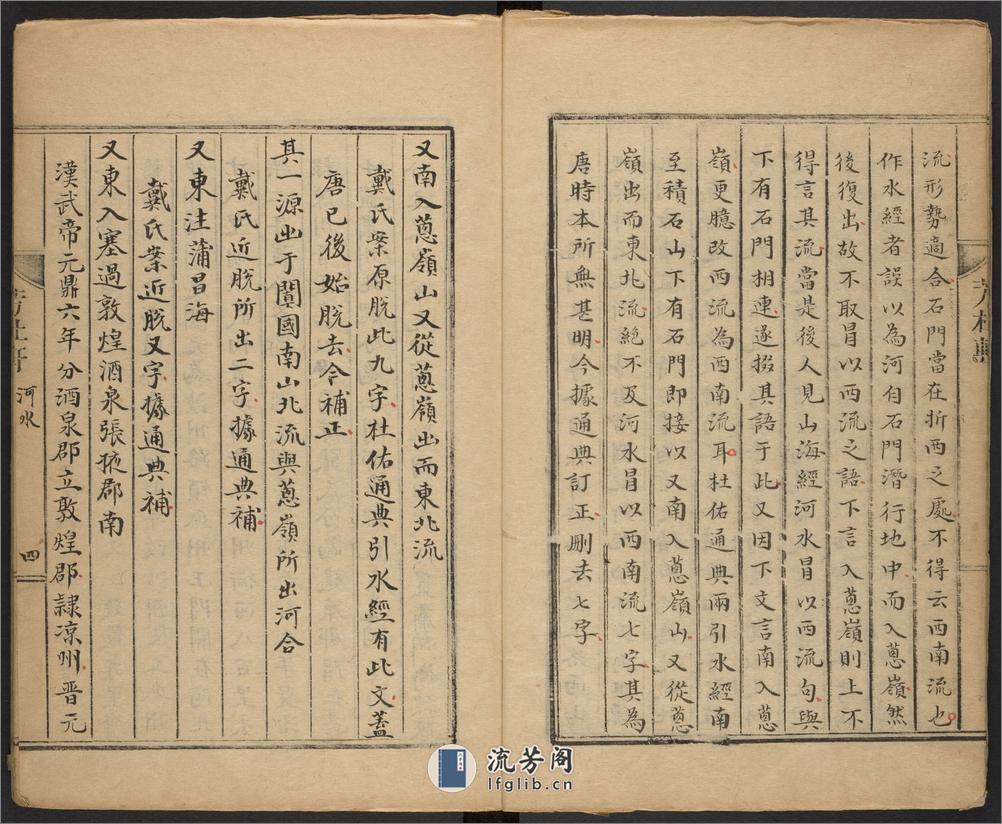 流形勢適合石門當在折西之處不得云西南流也
作水經者誤以為河自石門潛行地中而入蔥嶺然
後復出故不取冒以西流之語下言入蔥嶺則上不
得言其流當是後人見山海經河水冒以西流句與
下有石門相連遂掇其語于此又因下文言南入蔥
嶺更臆改西流為西南流耳杜佑通典兩引水經南
至積石山下有石門即接以又南入蔥嶺山又從蔥
嶺出而東北流絕不及河水冒以西南流七字其為
唐時本所無甚明今據通典訂正刪去七字
又南入蔥嶺山又從蔥嶺出而東北流
戴氏案原脫此九字杜佑通典引水經有此文蓋
唐已後始脫去今補正
其一源出于闐國南山北流與蔥嶺所出河合
戴氏近脫所出二字據通典補
又東注蒲昌海
戴氏案近脫又字據通典補
又東入塞過敦煌酒泉張掖郡南
漢武帝元鼎六年分酒泉郡立敦煌郡隸凉州晉元
河水
四
流芳阁
lfglib.cn